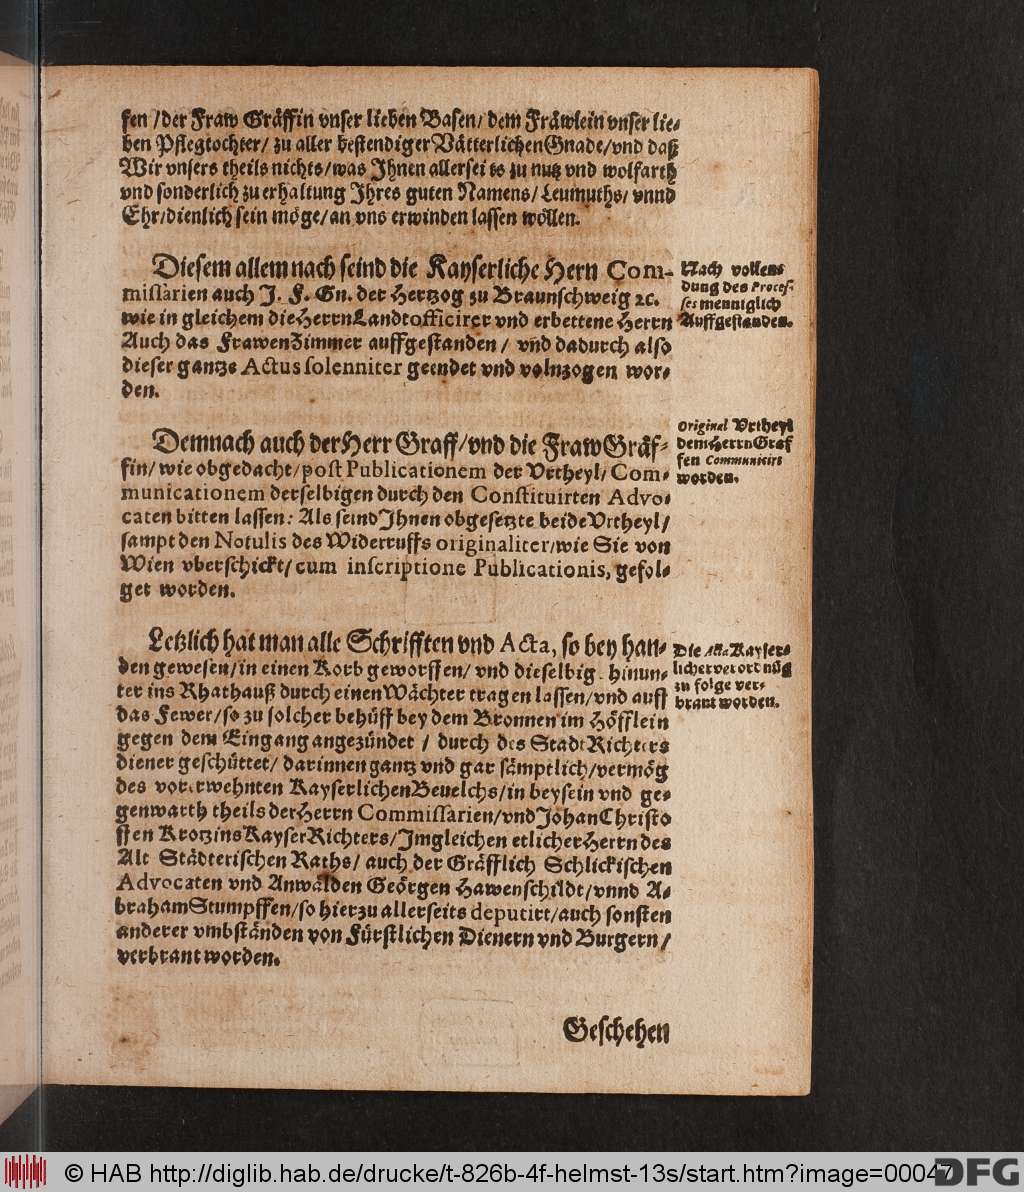 fen /der Fraw Gräffin vnser lieben Basen/ dem Fräwlein vnser lie-
ben Pflegtochter/ zu aller bestendiger Vätterlichen Gnade/vnd daß
Wir vnsers theils nichts/was Ihnen allerseits zu nutz vnd wolfarth
vnd sonderlich zu erhaltung Ihres guten Namens/ Leumuths/ vnnd
Ehr/dienlich sein möge/an vns erwinden lassen wöllen.
Diesem allem nach seind die Kayserliche Hern Com-
missarien auch J. F. Gn. der Hertzog zu Braunschweig ꝛc.
wie in gleichem die Herrn Landtofficirer vnd erbettene Herrn
Auch das FrawenZimmer auffgestanden / vnd dadurch also
dieser gantze Actus solenniter geendet vnd volnzogen wor-
den.
Nach vollen-
dung des Proces-
ses menniglich
Auffgestanden.
Demnach auch der Herr Graff/vnd die Fraw Gräf-
fin/ wie obgedacht/post Publicationem der Vrtheyl/ Com-
municationem derselbigen durch den Constituirten Advo-
caten bitten lassen: Als seind Ihnen obgesetzte beide Vrtheyl/
sampt den Notulis des Widerruffs originaliter/wie Sie von
Wien vberschickt/ cum inscriptione Publicationis, gefol-
get worden.
Original Vrtheyl
dem Herrn Graf
fen Communicirt
worden.
Letzlich hat man alle Schrifften vnd Acta, so bey han-
den gewesen/in einen Korb geworffen/ vnd dieselbig. hinun-
ter ins Rhathauß durch einen Wächter tragen lassen/vnd auff
das Fewer/so zu solcher behüff bey dem Bronnen im Höfflein
gegen dem Eingang angezündet / durch des Stadt Richters
diener geschüttet/ darinnen gantz vnd gar sämptlich/vermög
des vorerwehnten Kayserlichen Beuelchs/in beysein vnd ge-
genwarth theils der Herrn Commissarien/vnd Johan Christo
ffen Krotzins Kayser Richters/Imgleichen etlicher Herrn des
Alt Städterischen Raths/ auch der Gräfflich Schlickischen
Advocaten vnd Anwälden Geörgen Hawenschildt/vnnd A-
braham Stumpffen/so hierzu allerseits deputirt/auch sonsten
anderer vmbständen von Fürstlichen Dienern vnd Burgern/
verbrant worden.
Die Kayser-
licher verordnüg
zu folge ver-
brant worden.
Geschehen
© HAB http://diglib.hab.de/drucke/t-826b-4f-helmst-13s/start.htm?image=00047
DFG